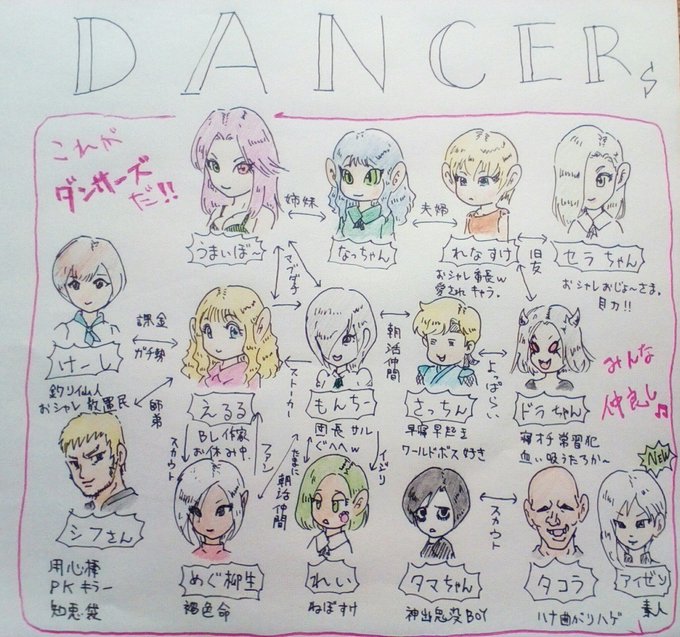 DANCERs
これが
ダンサーズ
だ!!
うまいぼ〜
姉妹
なっちゃん
夫婦
れなすけ
オシャレ番長w
愛されキャラ。
旧友
セラちゃん
オシャレおじょ〜さま。
目力!!
マブダチ
けーし
釣り仙人
オシャレ教置民
課金
ガチ勢
えるる
BL作家
お休み中
ストーカー
もんちー
団長 サル
ぐへへw
朝活
仲間
さっちん
早寝早起き
ワールドボス好き
よっぱらい
ドラちゃん
寝オチ常習犯
血ぃ吸うたろか〜
みんな
仲良し♫
師弟
シフさん
用心棒
PKキラー
知恵袋
スカウト
ファン
めぐ柳生
褐色命
たまに
朝活
仲間
イジリ
れい
ねぼすけ
タマちゃん
神出鬼没BOY
スカウト
タコラ
ハナ曲がりハゲ
NEW
アイゼン
素人